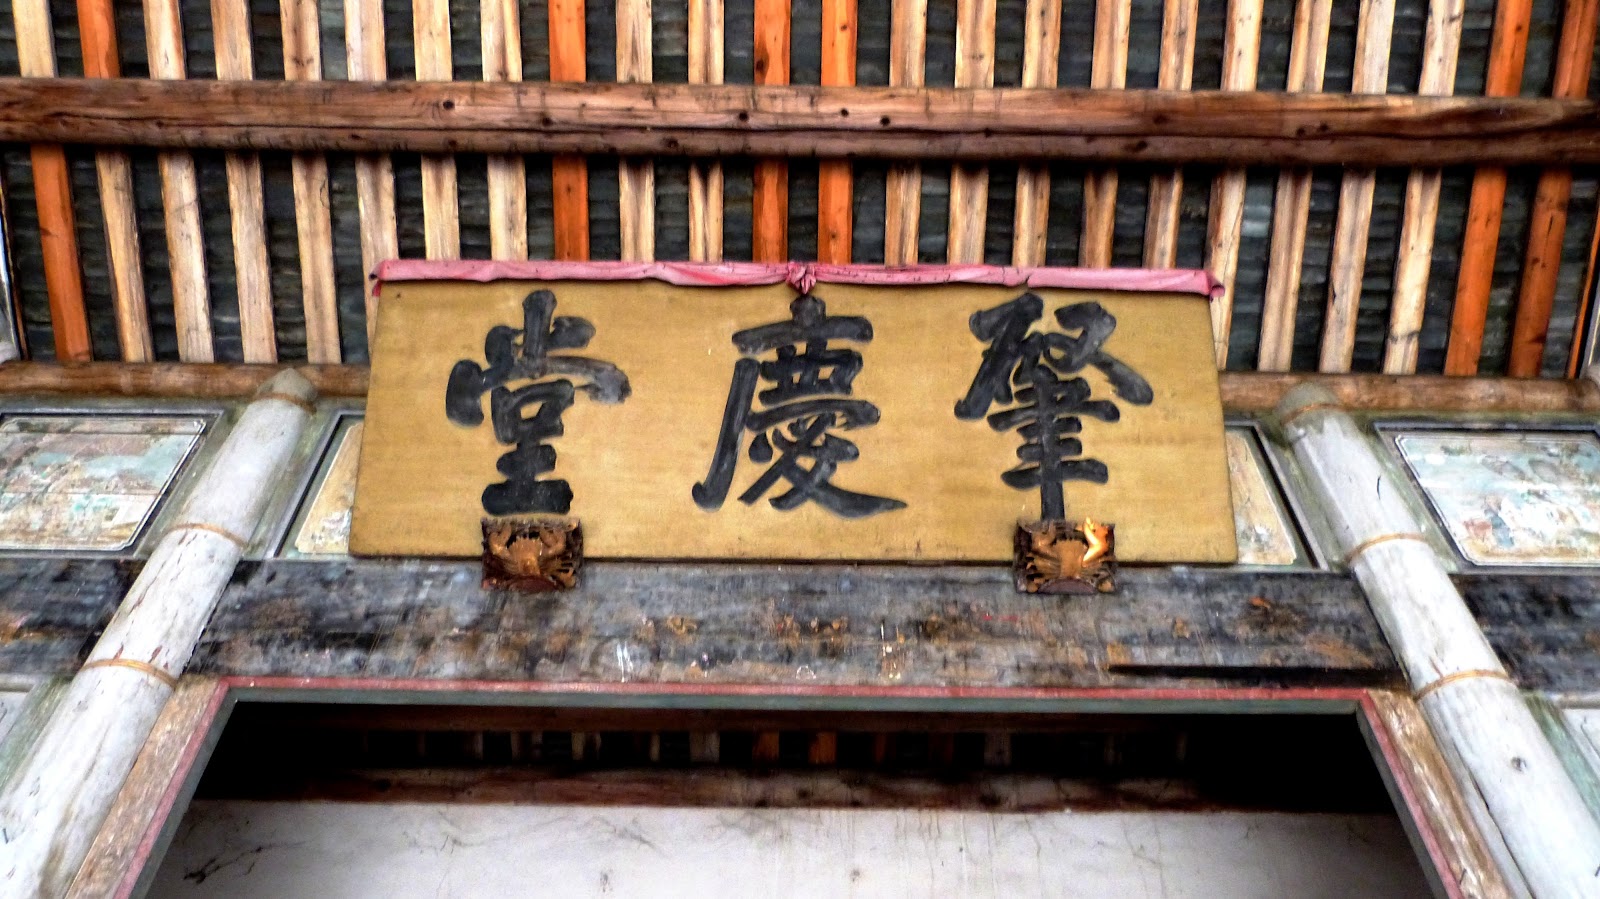 肇慶堂